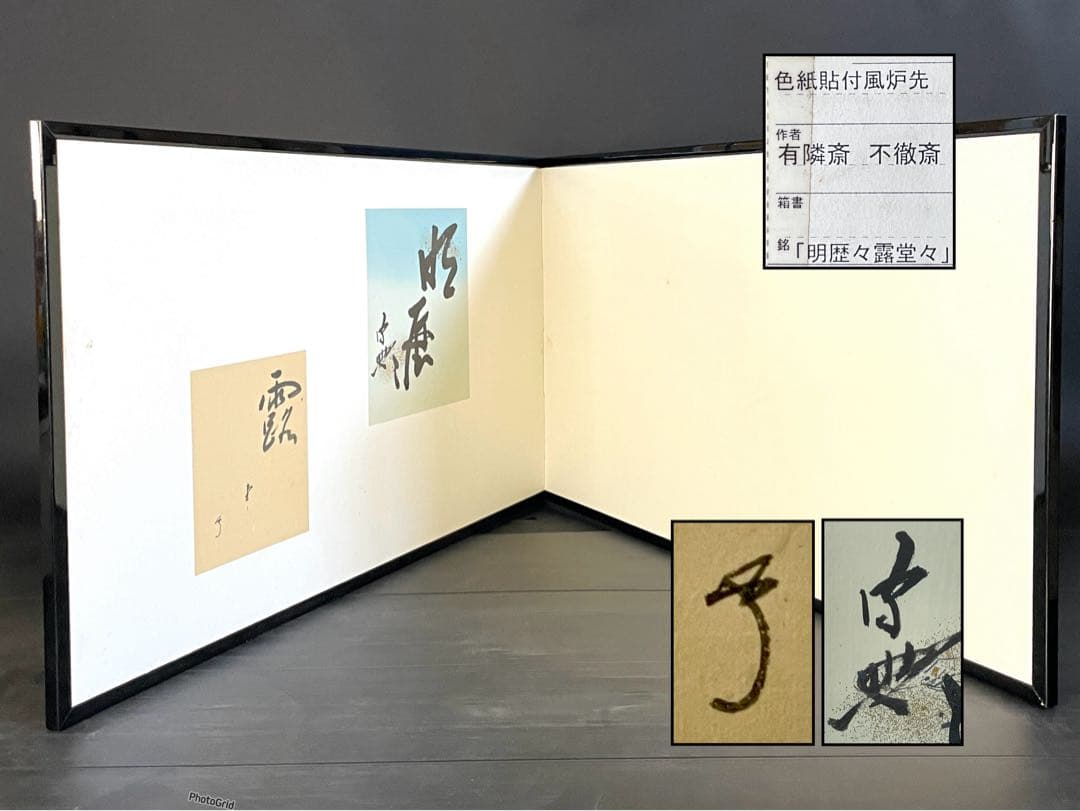 色紙貼付風炉先
作者
有隣斎 不徹斎
箱書
銘「明歴々露堂々」
明歴
露
PhotoGrid